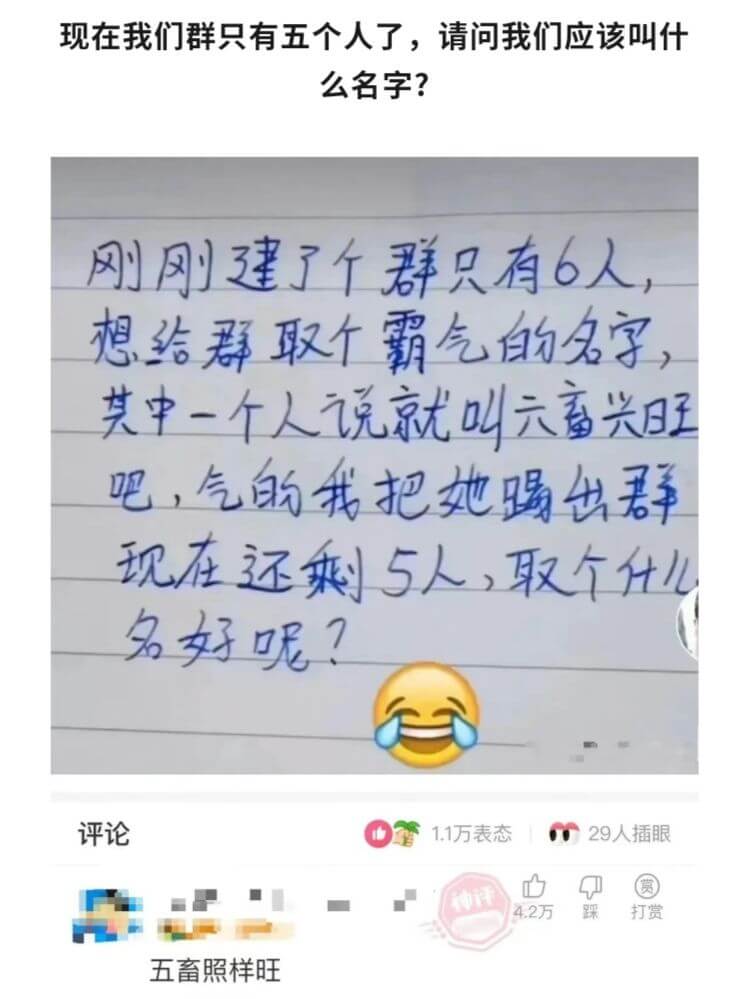 现在我们群只有五个人了，请问我们应该叫什
么名字?
刚刚建了个群只有6人,
想给群取个霸气的名字,
其中一个人说就叫六畜兴旺
吧,气的我把她踢出群
现在还剩5人,取个什么
名好呢?
评论
1.1万表态
29人插眼
神评
4.2万
踩
赏
打赏
五畜照样旺